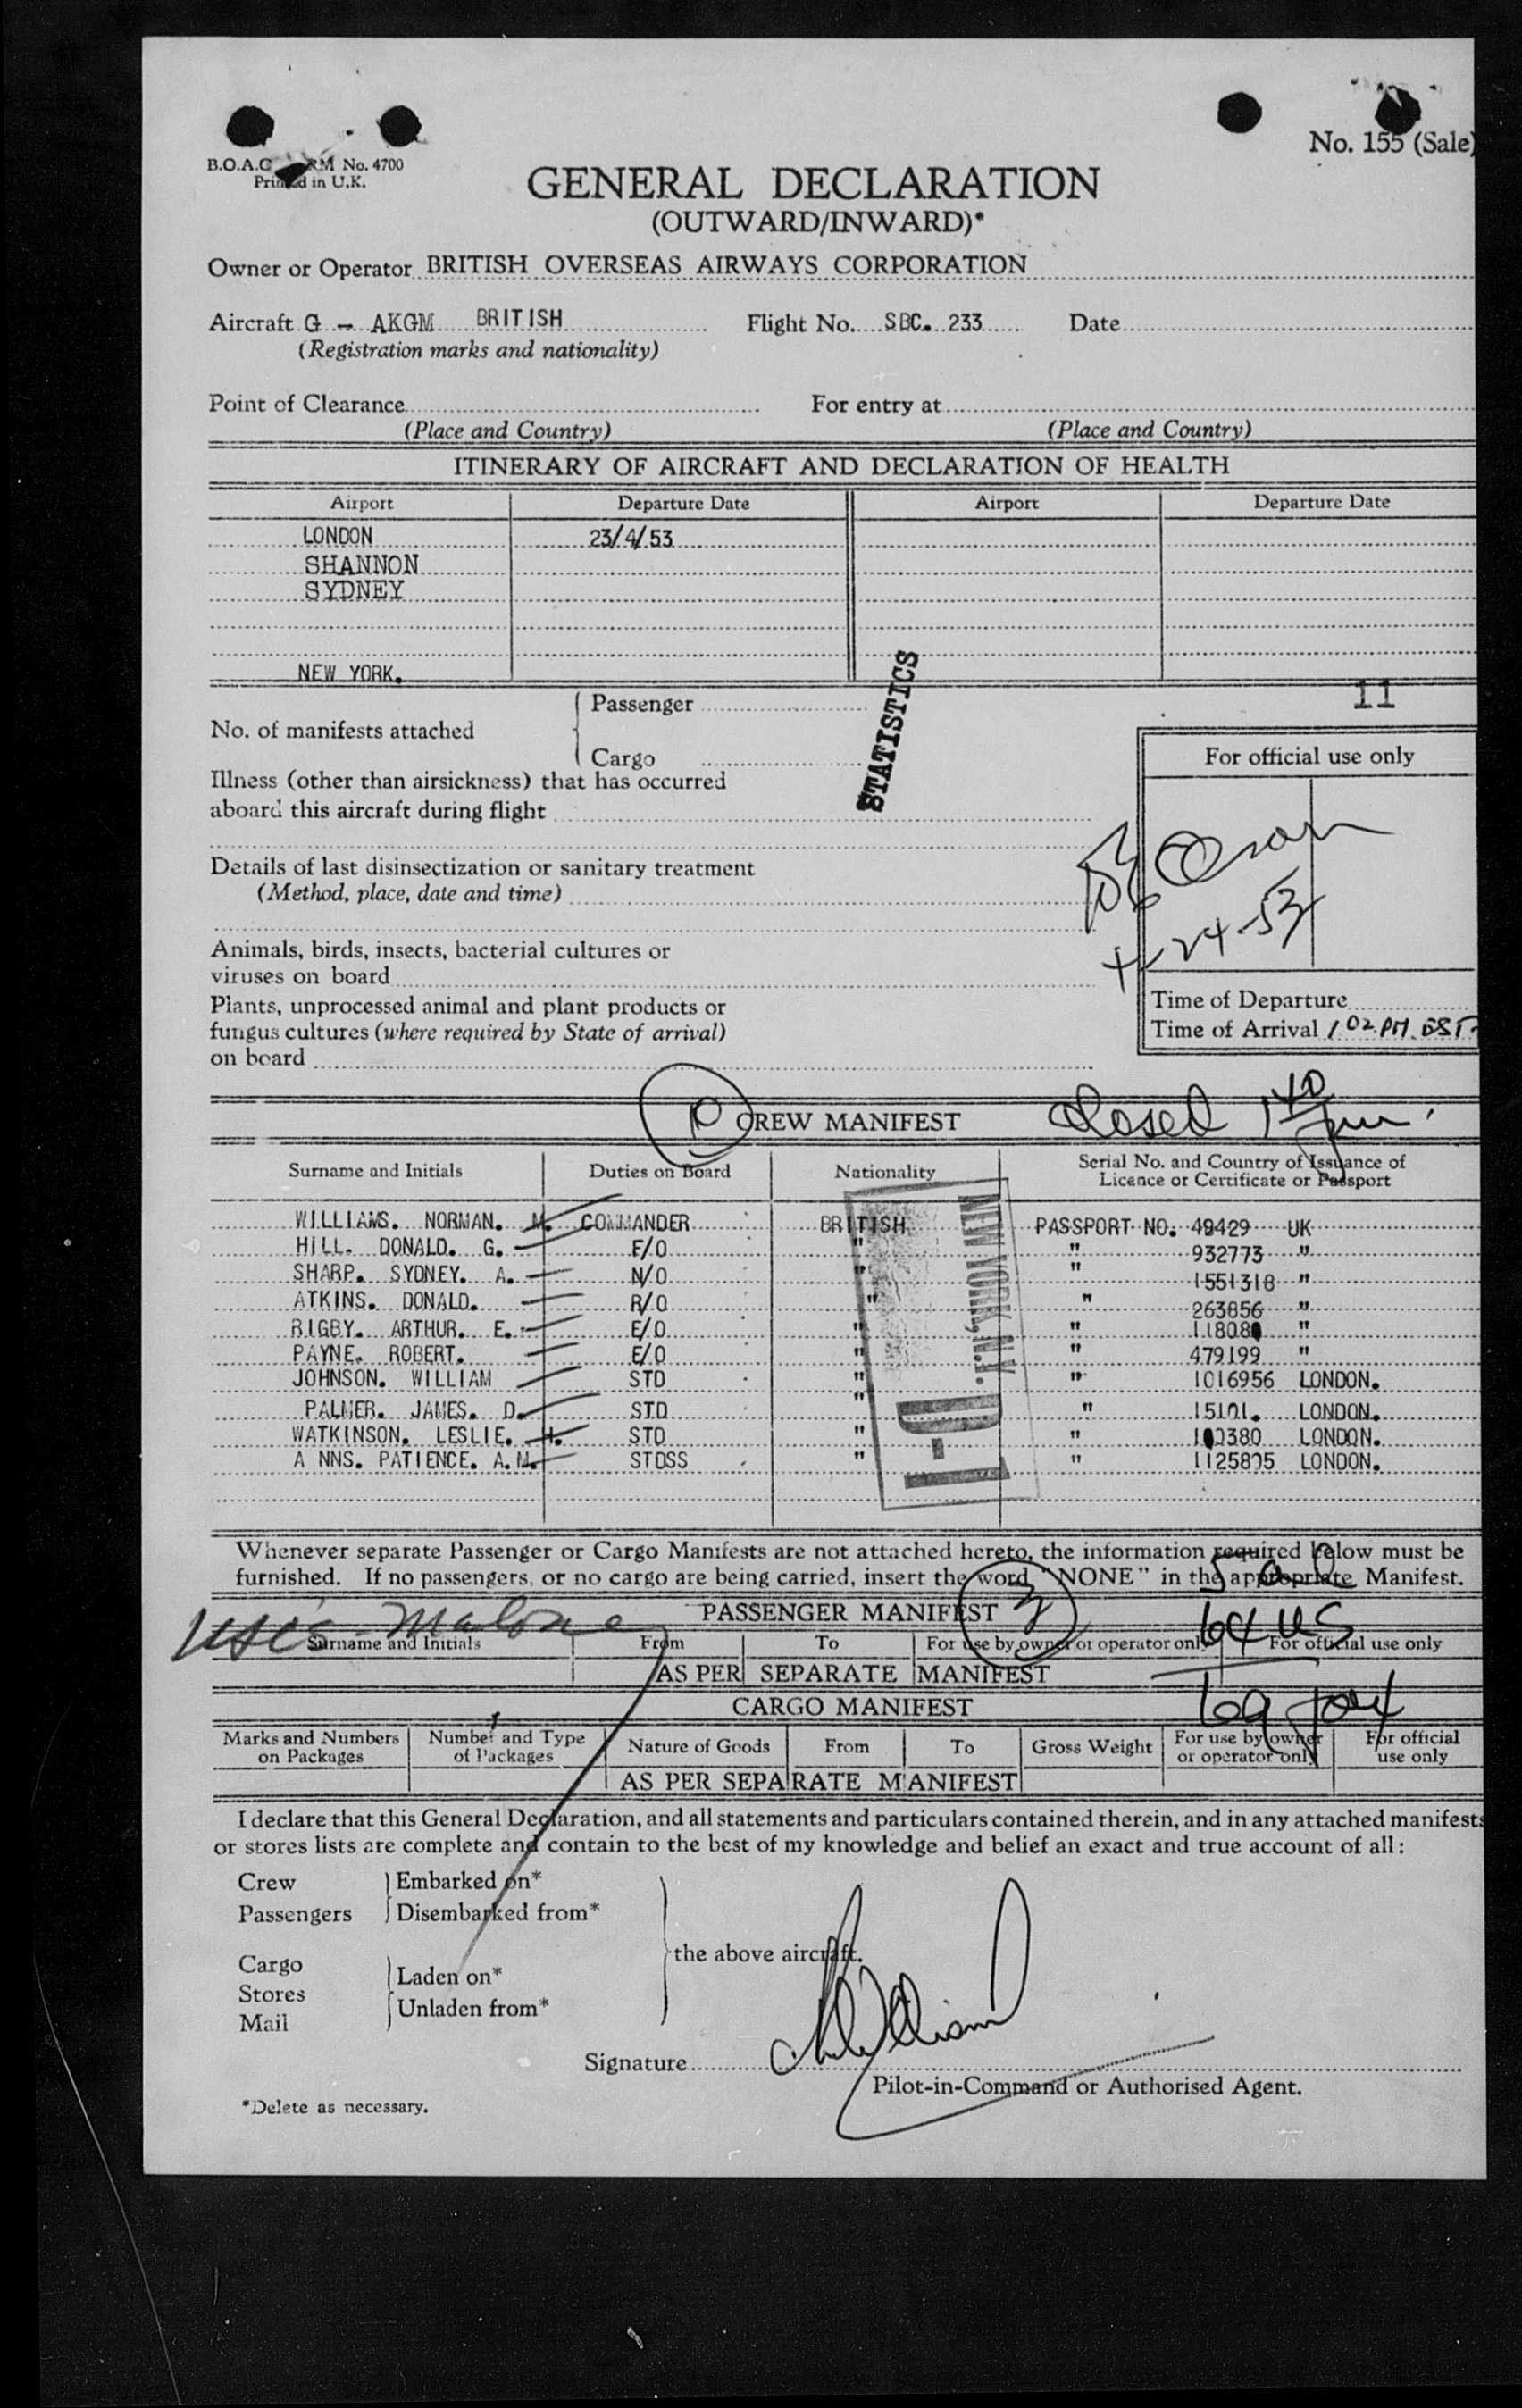 No. 155 (Sale)
B.O.A.C. FORM No. 4700
Printed in U.K.
GENERAL DECLARATION
(OUTWARD/INWARD)*
Owner or Operator BRITISH OVERSEAS AIRWAYS CORPORATION
Aircraft G - AKGM BRITISH Flight No. SBC. 233 Date
(Registration marks and nationality)
Point of Clearance For entry at
(Place and Country) (Place and Country)
ITINERARY OF AIRCRAFT AND DECLARATION OF HEALTH
Airport Departure Date Airport Departure Date
LONDON 23/4/53
SHANNON
SYDNEY
NEW YORK.
STATISTICS
11
Passenger
No. of manifests attached
Cargo
For official use only
Illness (other than airsickness) that has occurred
aboard this aircraft during flight
Details of last disinsectization or sanitary treatment
(Method, place, date and time)
4-24-53
Animals, birds, insects, bacterial cultures or
viruses on board
Plants, unprocessed animal and plant products or
fungus cultures (where required by State of arrival)
on board
Time of Departure
Time of Arrival 1 02 PM. EST
10 CREW MANIFEST closed 1 40 pm
Surname and Initials Duties on Board Nationality Serial No. and Country of Issuance of
Licence or Certificate or Passport
WILLIAMS. NORMAN. M. COMMANDER BRITISH PASSPORT NO. 49429 UK
HILL. DONALD. G. F/O " " 932773 "
SHARP. SYDNEY. A. N/O " 1551318 "
ATKINS. DONALD. R/O " " 263856 "
RIGBY. ARTHUR. E. E/O " " "
PAYNE. ROBERT. E/O " " 479199 "
JOHNSON. WILLIAM STD " " 1016956 LONDON.
PALMER. JAMES. D. STD " " 15101. LONDON.
WATKINSON. LESLIE. H. STD " " LONDON.
A NNS. PATIENCE. A.M. STDSS " " 1125805 LONDON.
NEW YORK, N.Y.
D-1
Whenever separate Passenger or Cargo Manifests are not attached hereto, the information required below must be
furnished. If no passengers, or no cargo are being carried, insert the word "NONE" in the appropriate Manifest.
PASSENGER MANIFEST 3
Malone
64 US
Surname and Initials From To For use by owner or operator only For official use only
AS PER SEPARATE MANIFEST
CARGO MANIFEST
69
Marks and Numbers on Packages Number and Type of Packages Nature of Goods From To Gross Weight For use by owner or operator only For official use only
AS PER SEPARATE MANIFEST
I declare that this General Declaration, and all statements and particulars contained therein, and in any attached manifests
or stores lists are complete and contain to the best of my knowledge and belief an exact and true account of all:
Crew Embarked on*
Passengers Disembarked from*
the above aircraft.
Cargo Laden on*
Stores
Unladen from*
Mail
Signature
Pilot-in-Command or Authorised Agent.
*Delete as necessary.